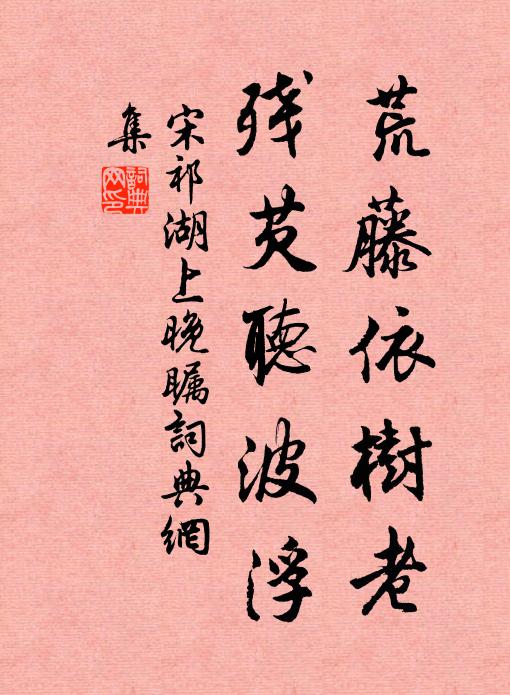 荒藤依樹老
残芡聽波浮
宋祁湖上晚瞩詞典網
集
詞典网印